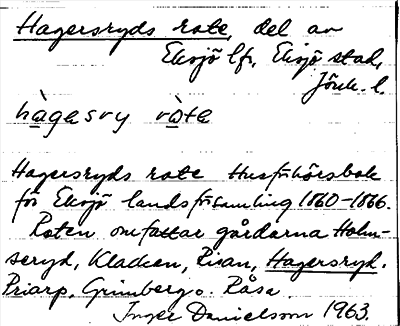 Hagersryds rote, del av
Eksjö lfs, Eksjö stad,
Jönk. l.
hàgesry ròte
Hagersryds rote Husförhörsbok
för Eksjö landsförsamling 1860-1866.
Roten omfattar gårdarna Holm-
seryd, Klacken, Risan, Hagersryd.
Priarp, Grimberg o. Råsa
Inger Danielsson 1963.